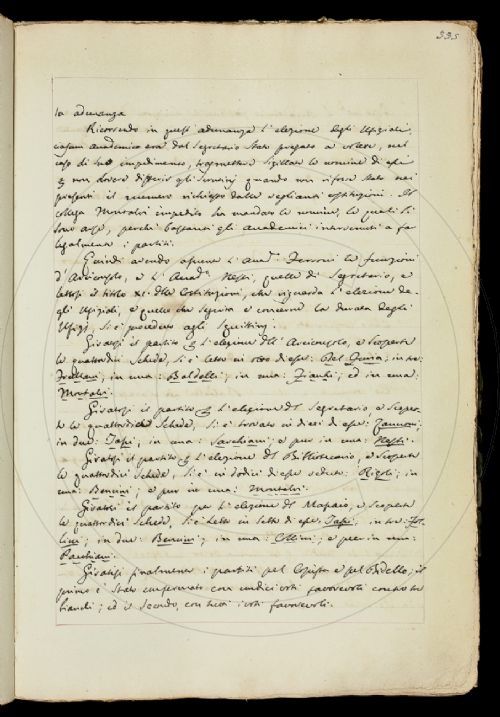 335
la adunanza
Ricorrendo in quest'adunanza l'elezione degli Ufiziali,
ciascun Accademico era dal Segretario stato pregato a volere, nel
caso di suo impedimento, trasmettere sigillate le nomine di essi
non dovere differir gli quando non fosse stato nei
presenti il numero richiesto dalle veglianti costituzioni. Il
collega Montalvi impedito ha mandato le nomine, le quali si
sono arse, perchè bastanti gli Accademici intervenuti a fa
legalmente i partiti.
Quindi avendo assunte l'Acc.º Ferroni le funzioni
d'Arciconsolo, e l'Acc.º Nesti, quelle di Segretario, e
lettosi il titolo XI. delle Costituzioni, che riguarda l'elezione de-
gli Ufiziali, e quello che seguita e concerne la durata degli
Ufizj, si è proceduto agli Squittinj.
Giratosi il partito l'elezione dell'Arciconsolo, e scoperte
le quattordici schede, si è letto in otto di esse: Del Furia; in tre:
Frullani; in una: Baldelli; in una: Fiacchi; ed in una:
Montalvi.
Giratosi il partito l'elezione del Segretario, e scoper-
te le quattordici schede, si è trovato in dieci di esse: Zannoni;
in due: in una: Sarchiani; e pure in una: Nesti.
Giratosi il partito l'elezione del Bibliotecario, e scoperte
le quattordici schede, si è in dodici di esse veduto: Rigoli; in
una: Bencini; e pur in una: Montalvi.
Giratosi il partito per l'elezione del Massaio, e scoperte
le quattordici schede, si è letto in sette di esse in tre: Fol-
lini; in due: Bencini; in una: Collini; e pure in una:
Giratisi finalmente i partiti pel Copista e pel Bidello; il
primo è stato confermato con undici voti favorevoli contro tre
bianchi; ed il secondo, con tutti i voti favorevoli.